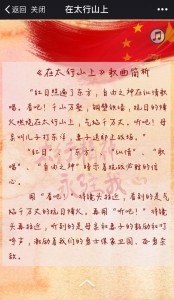 返回 关闭 在太行山上
《在太行山上》歌曲简析
"红日照遍了东方，自由之神在纵情歌
唱。看吧！千山万壑，铜壁铁墙，抗日的烽
火燃烧在太行山上，气焰千万丈。听吧！母
亲叫儿子打东洋，妻子送郎上战场。"
"红日"、"东方"、"纵情"、"歌
唱"、"自由之神"暗示着抗战必胜的信
心。
用"看吧！"将镜头推近，看到的是气
焰千万丈的抗日烽火，再用"听吧！"将镜
头再拉近，听到的是母亲和妻子的鼓励和叮
咛声，激励着我们的勇士保家卫国、奋勇杀
敌。